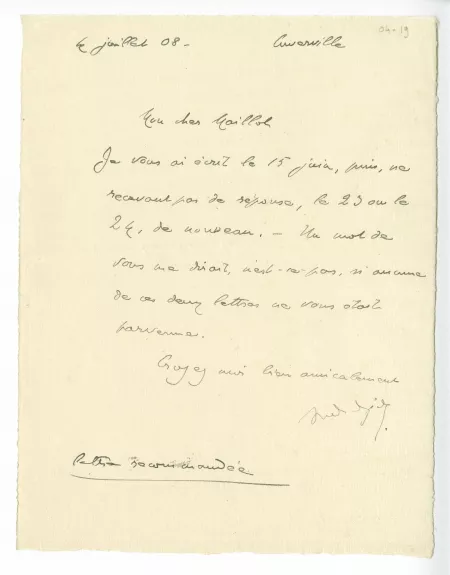 4 juillet 08 -
Cuverville
04-19
Mon cher Maillol
Je vous ai écrit le 15 juin, puis, ne
recevant pas de réponse, le 23 ou le
24, de nouveau. - Un mot de
vous me dirait, n'est-ce pas, si aucune
de ces deux lettres ne vous était
parvenue.
Croyez moi bien amicalement
André Gide.
lettre recommandée